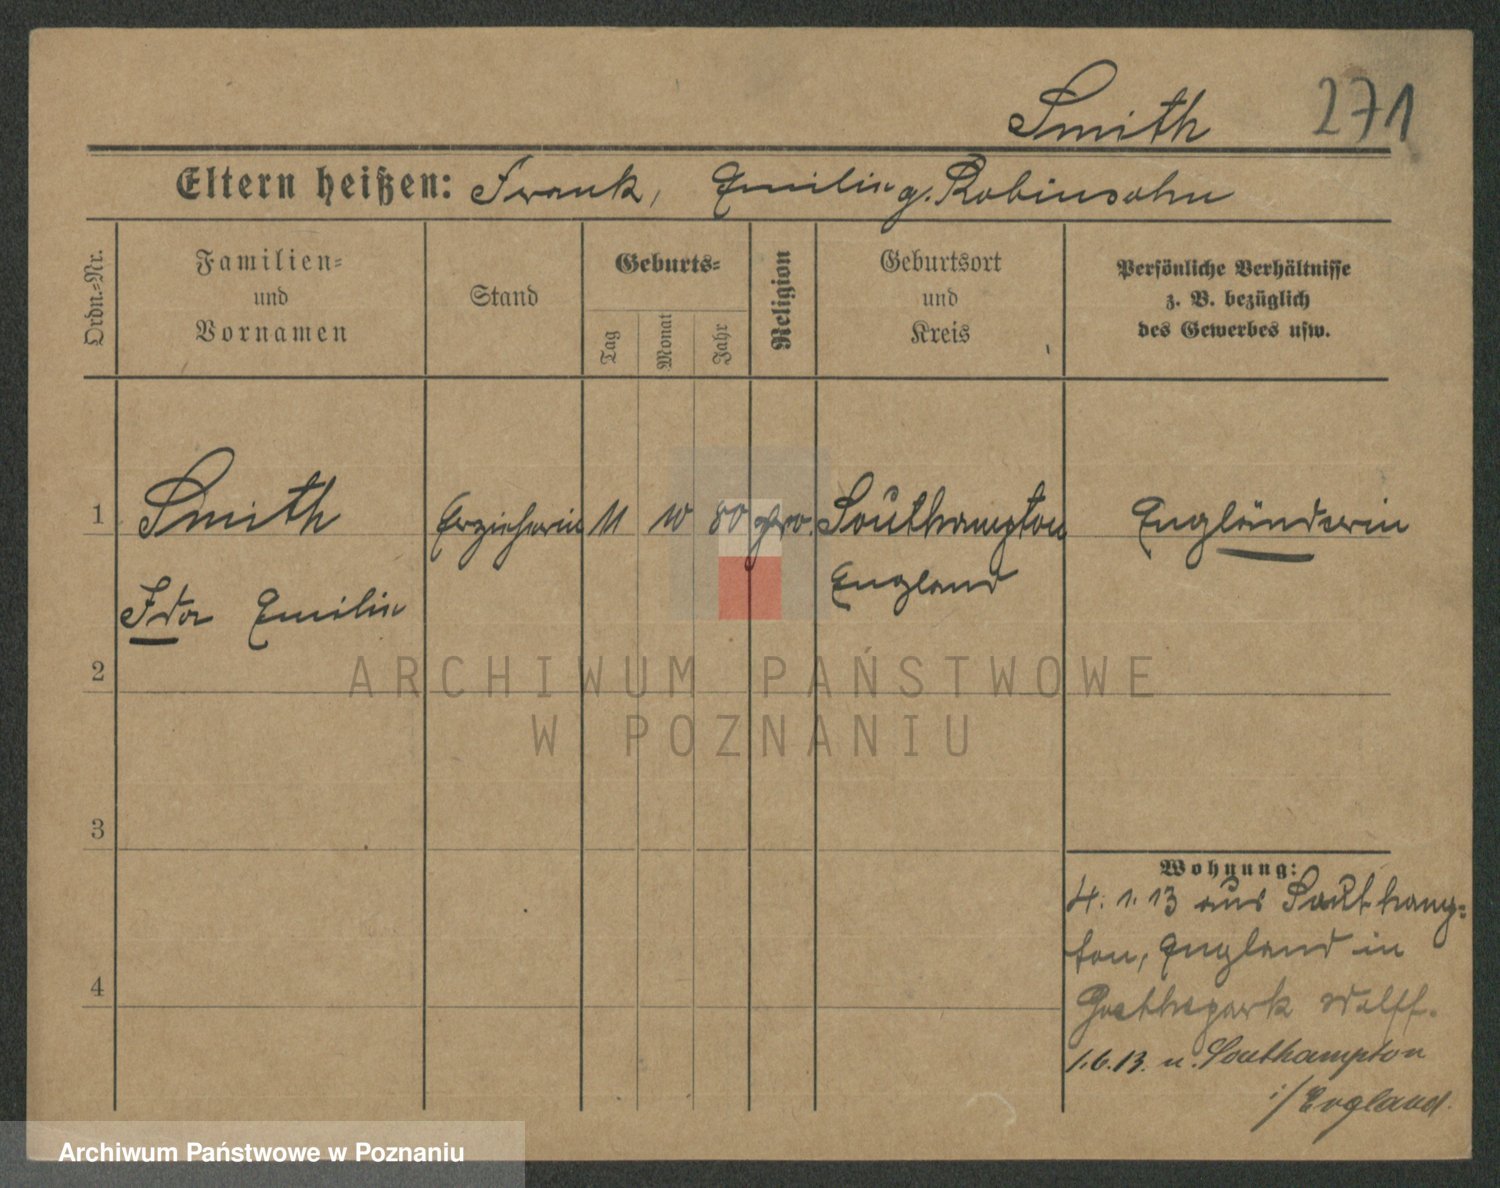 Smith 271
Eltern heißen: Frank, Emilie g. Robinsohn
Ordn.-Nr.
Familien-
und
Vornamen
Stand
Geburts-
Tag
Monat
Jahr
Religion
Geburtsort
und
Kreis
Persönliche Verhältnisse
z. B. bezüglich
des Gewerbes usw.
1 Smith Erzieherin 11 10 80 Southampton Engländerin
England
Ida Emilie
2
3
4
Wohnung:
4. 1. 13 aus Southamp-
ton, England in
Goethepark
1.6.13. n. Southampton
i/England.
ARCHIWUM PAŃSTWOWE
W POZNANIU
Archiwum Państwowe w Poznaniu